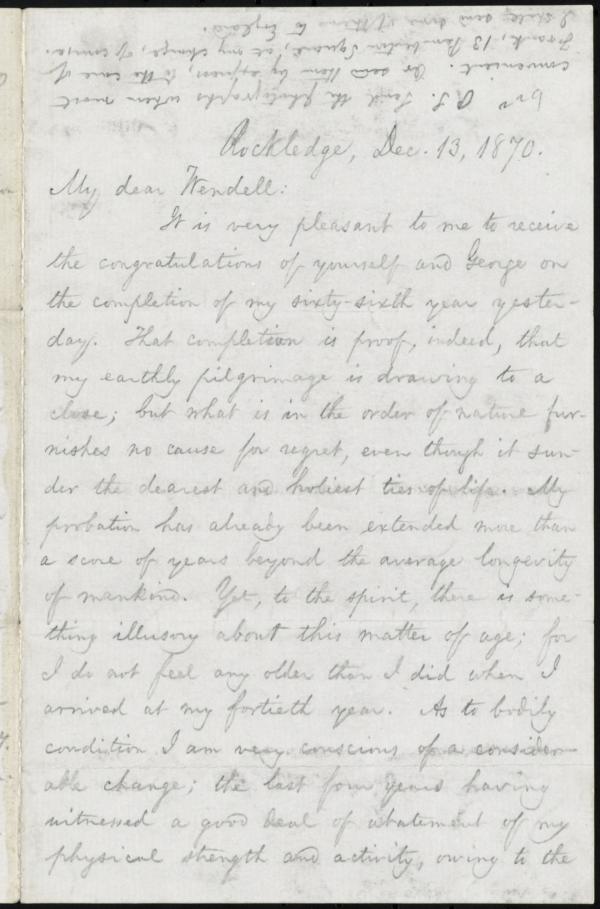 P. S. Send the photographs when most
convenient. Or send them by express, to the care of
Frank, 13 Pemberton Square, at my charge, of course.
I shall send some of them to England.
Rockledge, Dec. 13, 1870.
My dear Wendell:
It is very pleasant to me to receive
the congratulations of yourself and George on
the completion of my sixty-sixth year yester-
day. That completion is proof, indeed, that
my earthly pilgrimage is drawing to a
close; but what is in the order of nature fur-
nishes no cause for regret, even though it sun-
der the dearest and holiest ties of life. My
probation has already been extended more than
a score of years beyond the average longevity
of mankind. Yet, to the spirit, there is some-
thing illusory about this matter of age; for
I do not feel any older than I did when I
arrived at my fortieth year. As to bodily
condition I am very conscious of a consider-
able change; the last four years having
witnessed a good deal of abatement of my
physical strength and activity, owing to the